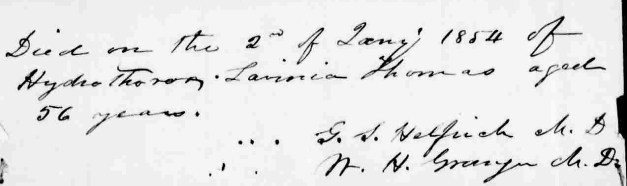 Died on the 2nd of Jany 1854 of
Hydrothorax. Lavinia Thomas aged
56 years.
G. S. Helfrich M. D
W. H. Granger M. D.